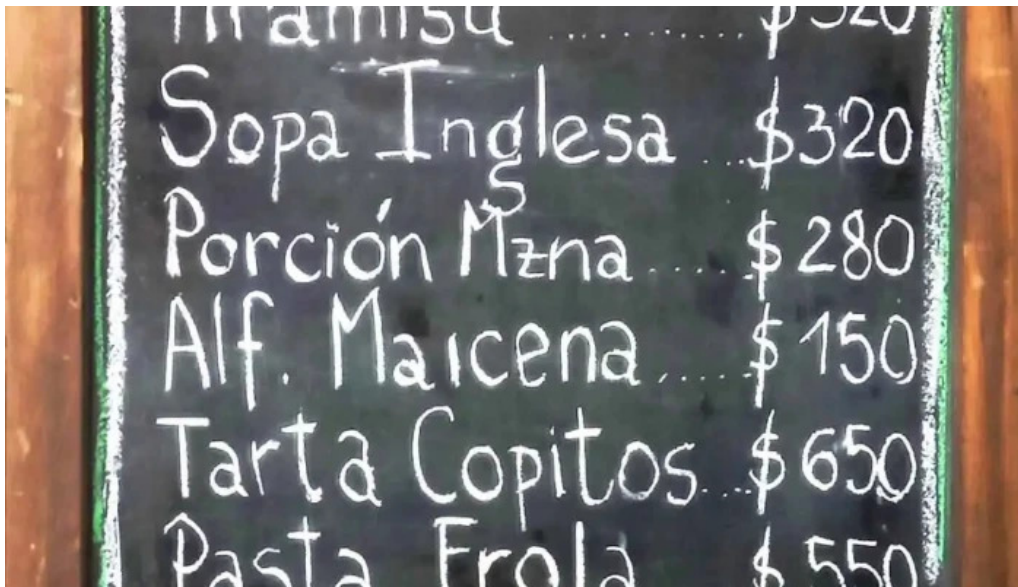 Tiramisu ............ $320
Sopa Inglesa ..... $320
Porción Mzna ...... $280
Alf. Maicena ...... $150
Tarta Copitos ..... $650
Pasta Frola $550